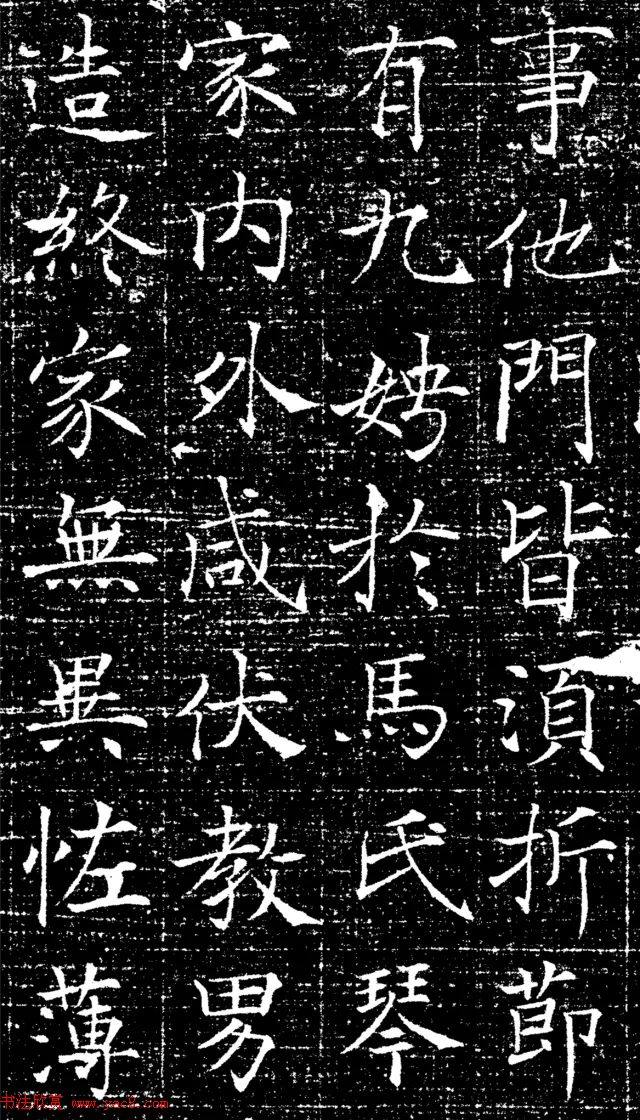 事他門皆湏折莭
有九娉於馬氏琴
家内外咸伏教男
造終家無異恠薄
书法欣赏 www.yac8.com